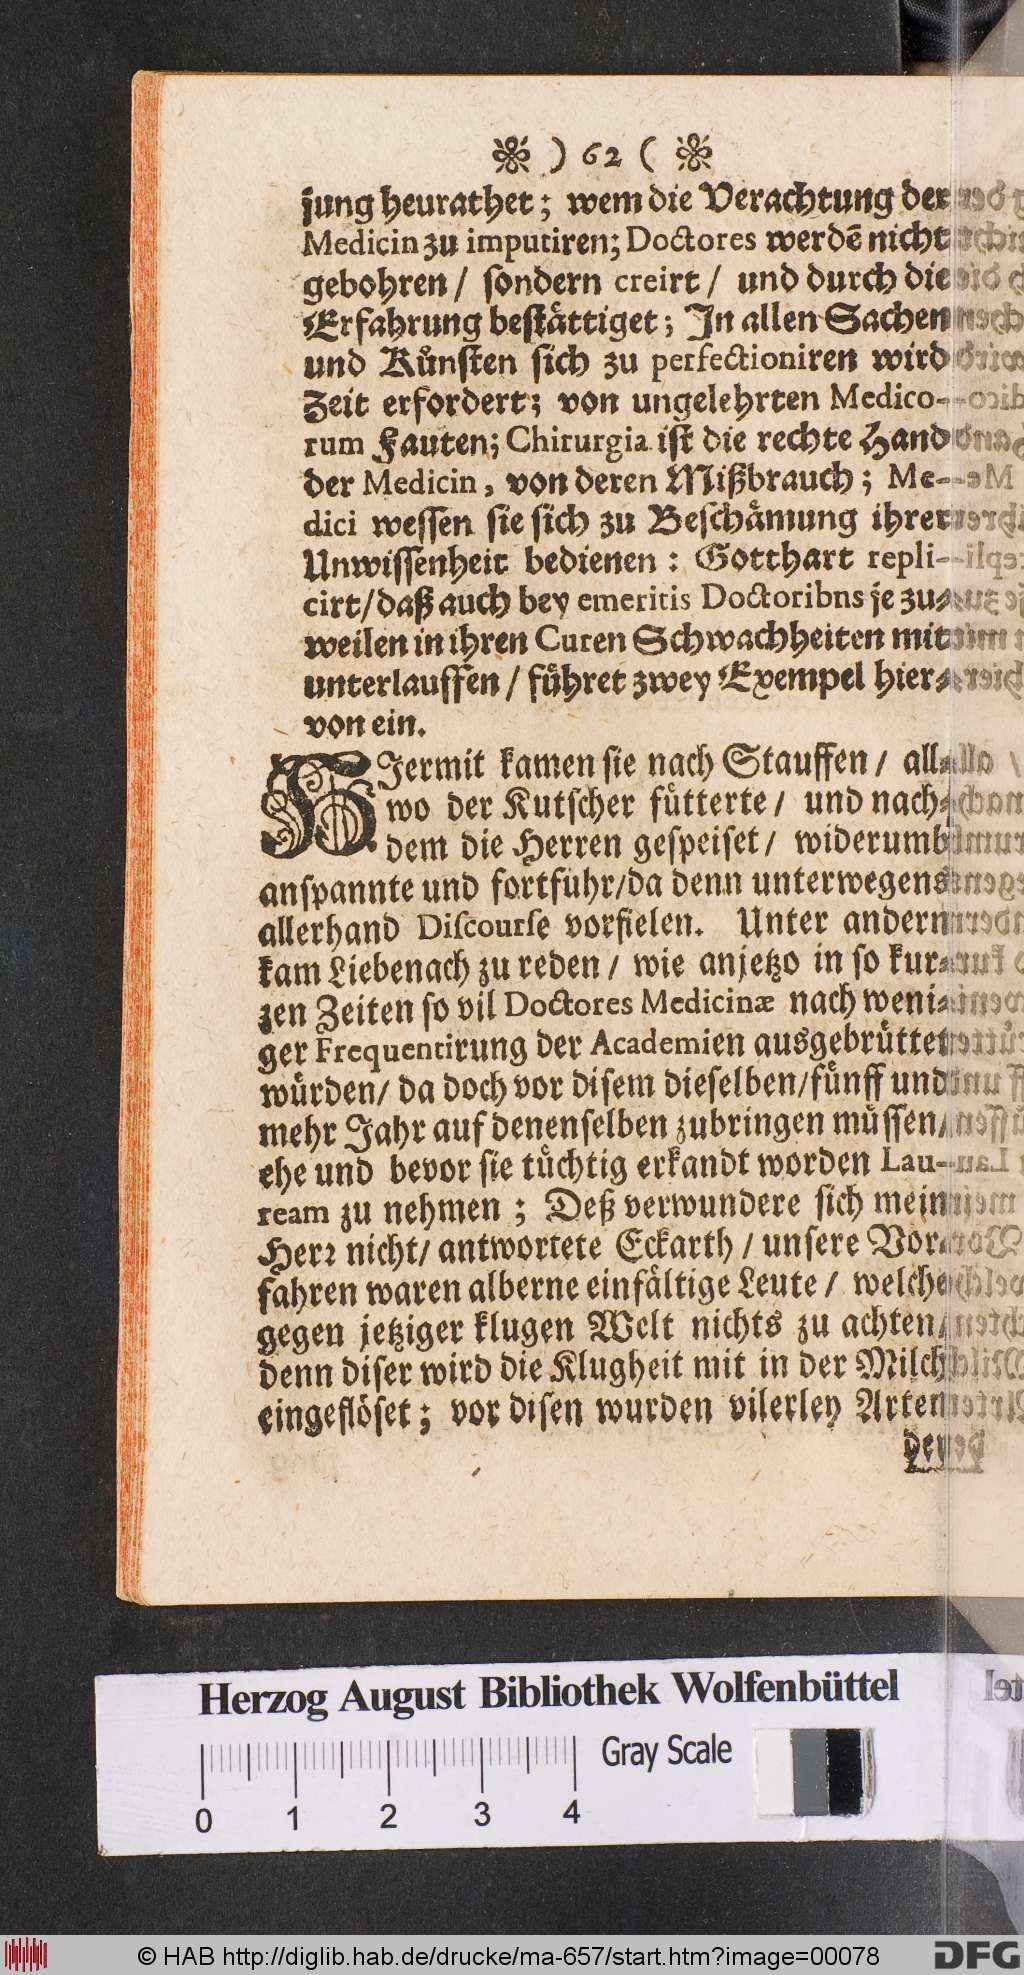 ❀ ) 62 ( ❀
jung heurathet; wem die Verachtung der
Medicin zu imputiren; Doctores werdẽ nicht
gebohren / sondern creirt / und durch die
Erfahrung bestättiget; In allen Sachen
und Kuͤnsten sich zu perfectioniren wird
Zeit erfordert; von ungelehrten Medico-
rum Fauten; Chirurgia ist die rechte Hand
der Medicin, von deren Mißbrauch; Me-
dici wessen sie sich zu Beschaͤmung ihrer
Unwissenheit bedienen: Gotthart repli-
cirt/daß auch bey emeritis Doctoribns je zu-
weilen in ihren Curen Schwachheiten mit
unterlauffen / fuͤhret zwey Exempel hier-
von ein.
HIermit kamen sie nach Stauffen / all-
wo der Kutscher fuͤtterte / und nach-
dem die Herren gespeiset / widerumb
anspannte und fortfuhr/da denn unterwegens
allerhand Discourse vorfielen. Unter andern
kam Liebenach zu reden / wie anjetzo in so kur-
zen Zeiten so vil Doctores Medicinæ nach weni-
ger Frequentirung der Academien ausgebruͤttet
wuͤrden/ da doch vor disem dieselben/fuͤnff und
mehr Jahr auf denenselben zubringen muͤssen/
ehe und bevor sie tuͤchtig erkandt worden Lau-
ream zu nehmen ; Deß verwundere sich mein
Herꝛ nicht/ antwortete Eckarth / unsere Vor-
fahren waren alberne einfaͤltige Leute / welche
gegen jetziger klugen Welt nichts zu achten/
denn diser wird die Klugheit mit in der Milch
eingefloͤset; vor disen wurden vilerley Arten
Herzog August Bibliothek Wolfenbüttel
Gray Scale
0 1 2 3 4
© HAB http://diglib.hab.de/drucke/ma-657/start.htm?image=00078
DFG